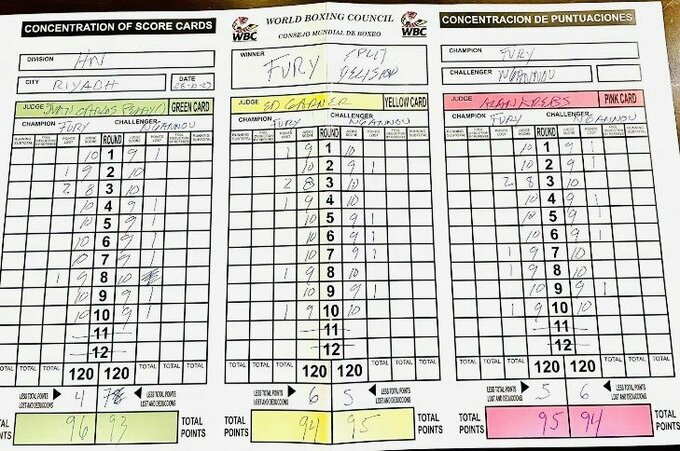 CONCENTRATION OF SCORE CARDS
DIVISION HN
CITY RIYADH DATE
WORLD BOXING COUNCIL
CONSEJO MUNDIAL DE BOXEO
WBC WBC
WINNER FURY SPLIT
DECISION
CONCENTRACION DE PUNTUACIONES
CHAMPION FURY
CHALLENGER NGANNOU
JUDGE JUAN CARLOS PELAYO GREEN CARD
CHAMPION FURY CHALLENGER NGANNOU
ROUND
10 1 9 1
1 9 2 10
2 8 3 10
10 4 9 1
10 5 9 1
10 6 9 1
10 7 9 1
1 9 8 10
10 9 9 1
10 10 9 1
11
12
TOTAL TOTAL TOTAL 120 120 TOTAL TOTAL TOTAL
LESS TOTAL POINTS LOST AND DEDUCCIONS 4 7 LESS TOTAL POINTS LOST AND DEDUCCIONS
96 93 TOTAL POINTS
JUDGE ED GARNER YELLOW CARD
CHAMPION FURY CHALLENGER NGANNOU
ROUND
1 9 1 10
10 2 9 1
2 8 3 10
1 9 4 10
10 5 9 1
10 6 9 1
10 7 9 1
1 9 8 10
10 9 9 1
1 9 10 10
11
12
TOTAL TOTAL TOTAL 120 120 TOTAL TOTAL TOTAL
LESS TOTAL POINTS LOST AND DEDUCCIONS 6 5 LESS TOTAL POINTS LOST AND DEDUCCIONS
TOTAL POINTS 94 95 TOTAL POINTS
JUDGE ALAN KREBS PINK CARD
CHAMPION FURY CHALLENGER NGANNOU
ROUND
10 1 9 1
10 2 9 1
2 8 3 10
10 4 9 1
10 5 9 1
10 6 9 1
1 9 7 10
1 9 8 10
10 9 9 1
1 9 10 10
11
12
TOTAL TOTAL TOTAL 120 120 TOTAL TOTAL TOTAL
LESS TOTAL POINTS LOST AND DEDUCCIONS 5 6 LESS TOTAL POINTS LOST AND DEDUCCIONS
TOTAL POINTS 95 94 TOTAL POINTS